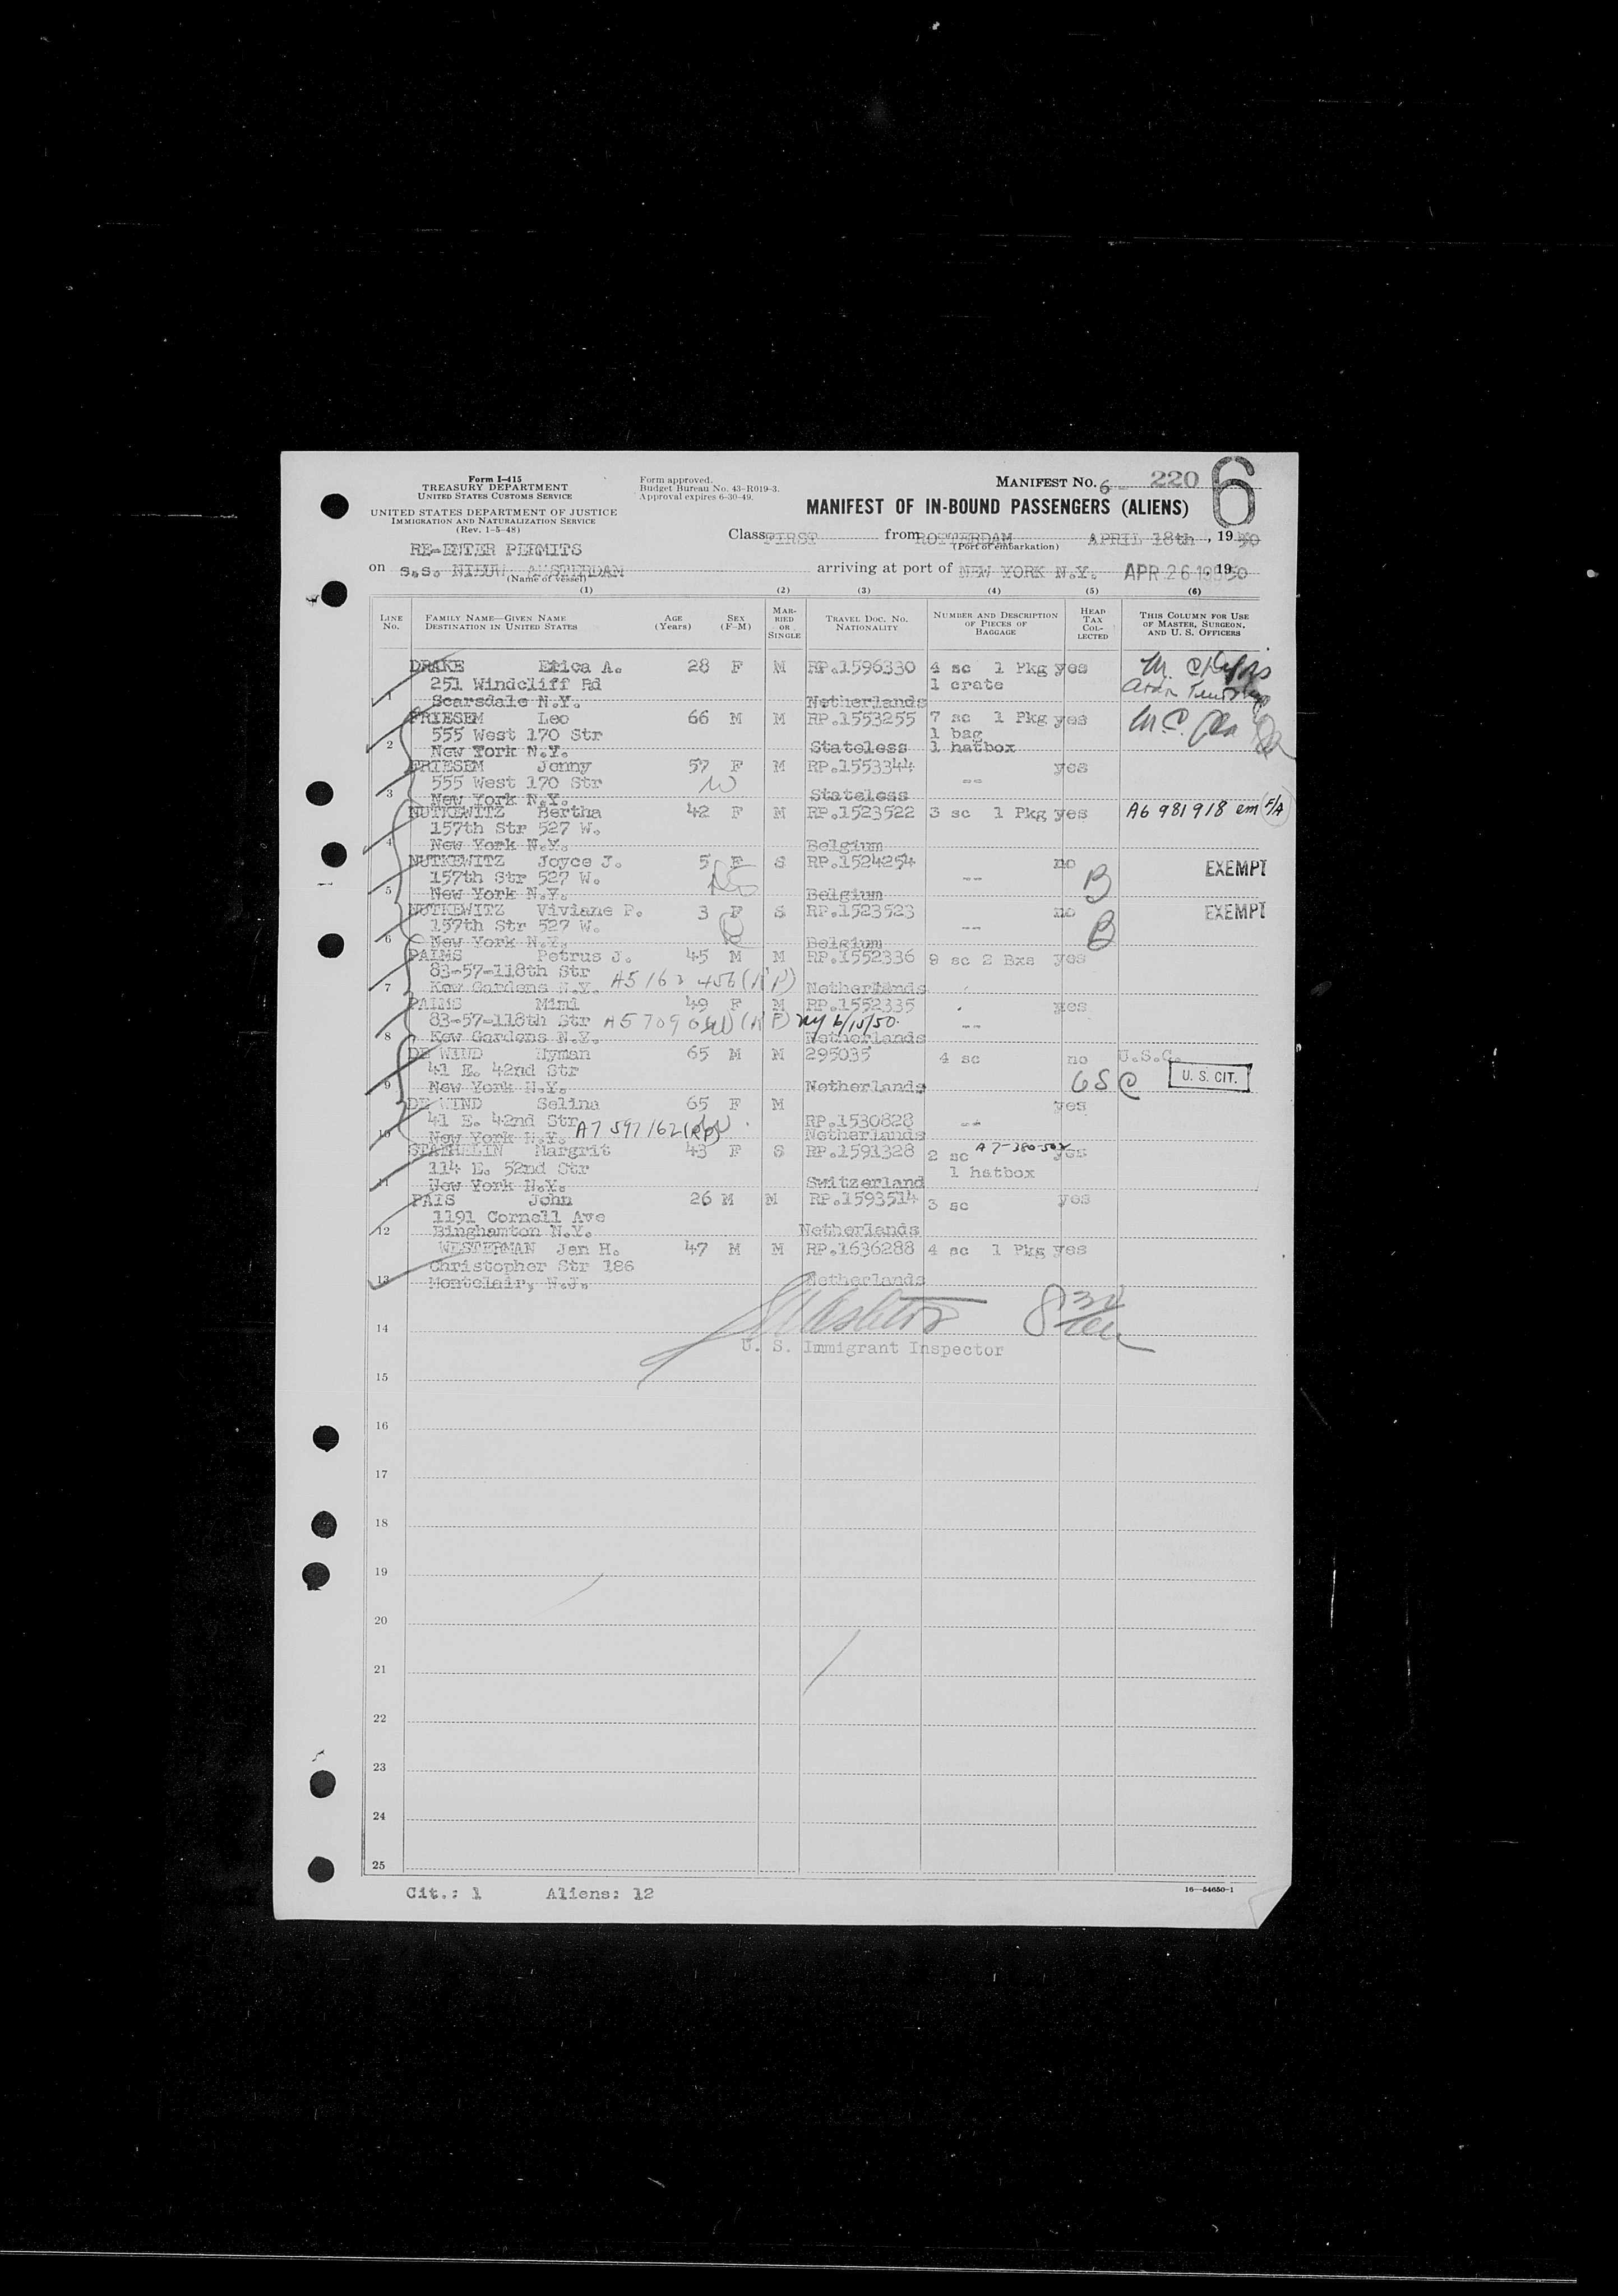 Form I-415
TREASURY DEPARTMENT
UNITED STATES CUSTOMS SERVICE
UNITED STATES DEPARTMENT OF JUSTICE
IMMIGRATION AND NATURALIZATION SERVICE
(Rev. 1-5-48)
Form approved.
Budget Bureau No. 43-R019-3.
Approval expires 6-30-49.
MANIFEST No. 6- 220 6
MANIFEST OF IN-BOUND PASSENGERS (ALIENS)
RE-ENTER PERMITS
Class FIRST from ROTTERDAM APRIL 18th, 1950
(Port of embarkation)
on s.s. NIEUW AMSTERDAM arriving at port of NEW YORK N.Y. APR 26 1950
(Name of vessel)
(1) (2) (3) (4) (5) (6)
LINE No. FAMILY NAME—GIVEN NAME DESTINATION IN UNITED STATES AGE (Years) SEX (F-M) MARRIED OR SINGLE TRAVEL DOC. NO. NATIONALITY NUMBER AND DESCRIPTION OF PIECES OF BAGGAGE HEAD TAX COLLECTED THIS COLUMN FOR USE OF MASTER, SURGEON, AND U. S. OFFICERS
DRAKE Erica A. 28 F M RP.1596330 4 sc 1 Pkg yes
251 Windcliff Rd 1 crate
1 Scarsdale N.Y. Netherlands
FRIESEM Leo 66 M M RP.1553255 7 sc 1 Pkg yes
555 West 170 Str 1 bag
2 New York N.Y. Stateless 1 hatbox
FRIESEM Jenny 57 F M RP.1553344 yes
555 West 170 Str --
3 New York N.Y. Stateless
NUTKEWITZ Bertha 42 F M RP.1523522 3 sc 1 Pkg yes A6 981918 em F/A
157th Str 527 W.
4 New York N.Y. Belgium
NUTKEWITZ Joyce J. 5 F S RP.1524254 no EXEMPT
157th Str 527 W. -- B
5 New York N.Y. Belgium
NUTKEWITZ Viviane P. 3 F S RP.1523523 no EXEMPT
157th Str 527 W. -- B
6 New York N.Y. Belgium
PAIMS Petrus J. 45 M M RP.1552336 9 sc 2 Bxs yes
83-57-118th Str
7 Kew Gardens N.Y. Netherlands
PAIMS Mimi 49 F M RP.1552335 yes
83-57-118th Str NY 6/15/50. --
8 Kew Gardens N.Y. Netherlands
DE WIND Hyman 65 M M 295035 4 sc no U.S.C.
41 E. 42nd Str U. S. CIT.
9 New York N.Y. Netherlands
DE WIND Selina 65 F M yes
41 E. 42nd Str RP.1530828 --
10 New York N.Y. A7 597162 (RP) Netherlands
STAEHELIN Margrit 43 F S RP.1591328 2 sc A7-380-502 yes
114 E. 52nd Str 1 hatbox
11 New York N.Y. Switzerland
PAIS John 26 M M RP.1593514 3 sc yes
1191 Cornell Ave
12 Binghamton N.Y. Netherlands
WESTERMAN Jan H. 47 M M RP.1636288 4 sc 1 Pkg yes
Christopher Str 186
13 Montclair, N.J. Netherlands
14
U. S. Immigrant Inspector
15
16
17
18
19
20
21
22
23
24
25
Cit.: 1 Aliens: 12
16—54650-1